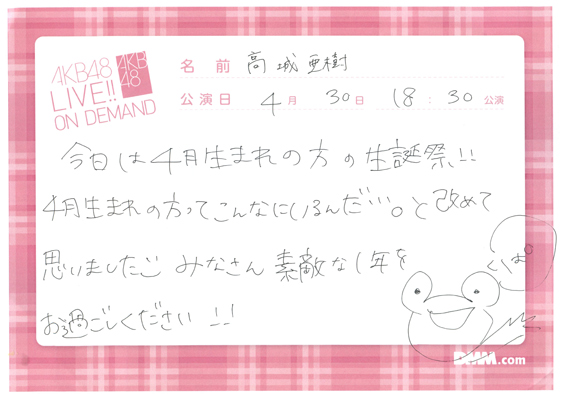 AKB48
LIVE!!
ON DEMAND
AKB
48
名 前 高城亜樹
公演日 4月 30日 18:30 公演
今日は4月生まれの方の生誕祭!!
4月生まれの方ってこんなにいるんだ…。と改めて
思いました
みなさん素敵な1年を
お過ごしください!!
DMM.com